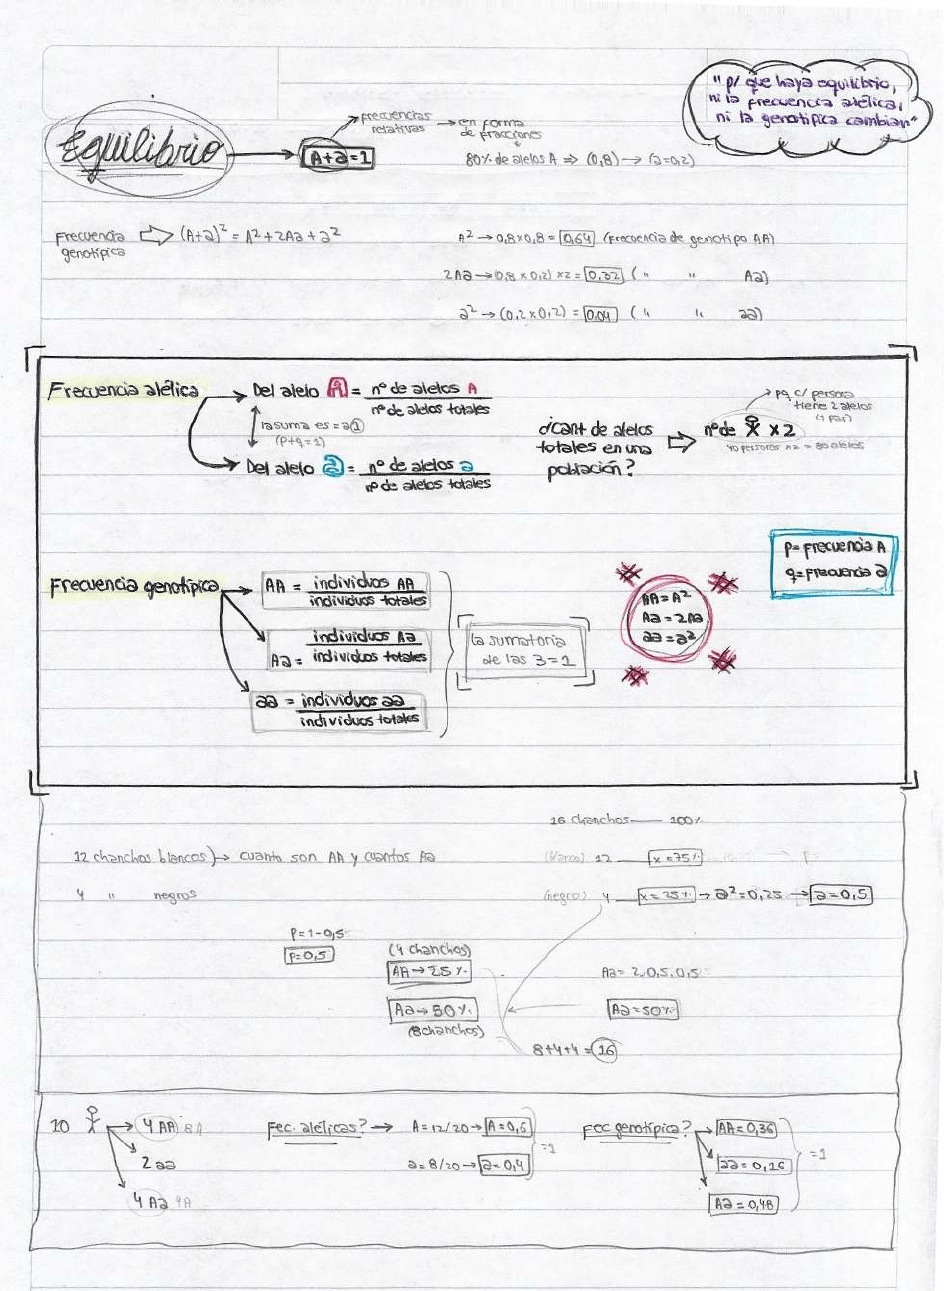 "p/ que haya equilibrio,
ni la frecuencia alélica,
ni la genotípica cambian"
Equilibrio → A+a=1
frecuencias
relativas → en forma
de fracciones
80% de alelos A ⇒ (0,8) → (a=0,2)
Frecuencia
genotípica ⇨ (A+a)² = A²+2Aa+a²
A² → 0,8x0,8 = 0,64 (frecuencia de genotipo AA)
2Aa → 0,8 x 0,2) x2 = 0,32 ( " " Aa)
a² → (0,2x0,2) = 0,04 ( " " aa)
Frecuencia alélica → Del alelo A = nº de alelos A
nº de alelos totales
la suma es = a 1
(p+q=1)
Del alelo a = nº de alelos a
nº de alelos totales
¿cant de alelos
totales en una
población? ⇨ nº de x 2
pq c/ persona
tiene 2 alelos
(1 par)
40 personas x2 = 80 alelos
p= frecuencia A
q= frecuencia a
Frecuencia genotípica → AA = individuos AA
individuos totales
Aa = individuos Aa
individuos totales
aa = individuos aa
individuos totales
la sumatoria
de las 3=1
AA=A²
Aa=2Aa
aa=a²
16 chanchos — 100%
12 chanchos blancos → cuanto son AA y cuantos Aa
(blanco) 12 — x=75%
4 " negros
(negro) 4 — x=25% → a²=0,25 → a=0,5
p=1-0,5
p=0,5
(4 chanchos)
AA → 25%
Aa → 50%
(8 chanchos)
Aa= 2.0,5.0,5
Aa=50%
8+4+4=16
10 → 4 AA 8A
2 aa
4 Aa 4A
Fec. alélicas? → A=12/20 → A=0,6
a=8/20 → a=0,4
=1
Fec genotípica? → AA=0,36
aa=0,16
Aa=0,48
=1